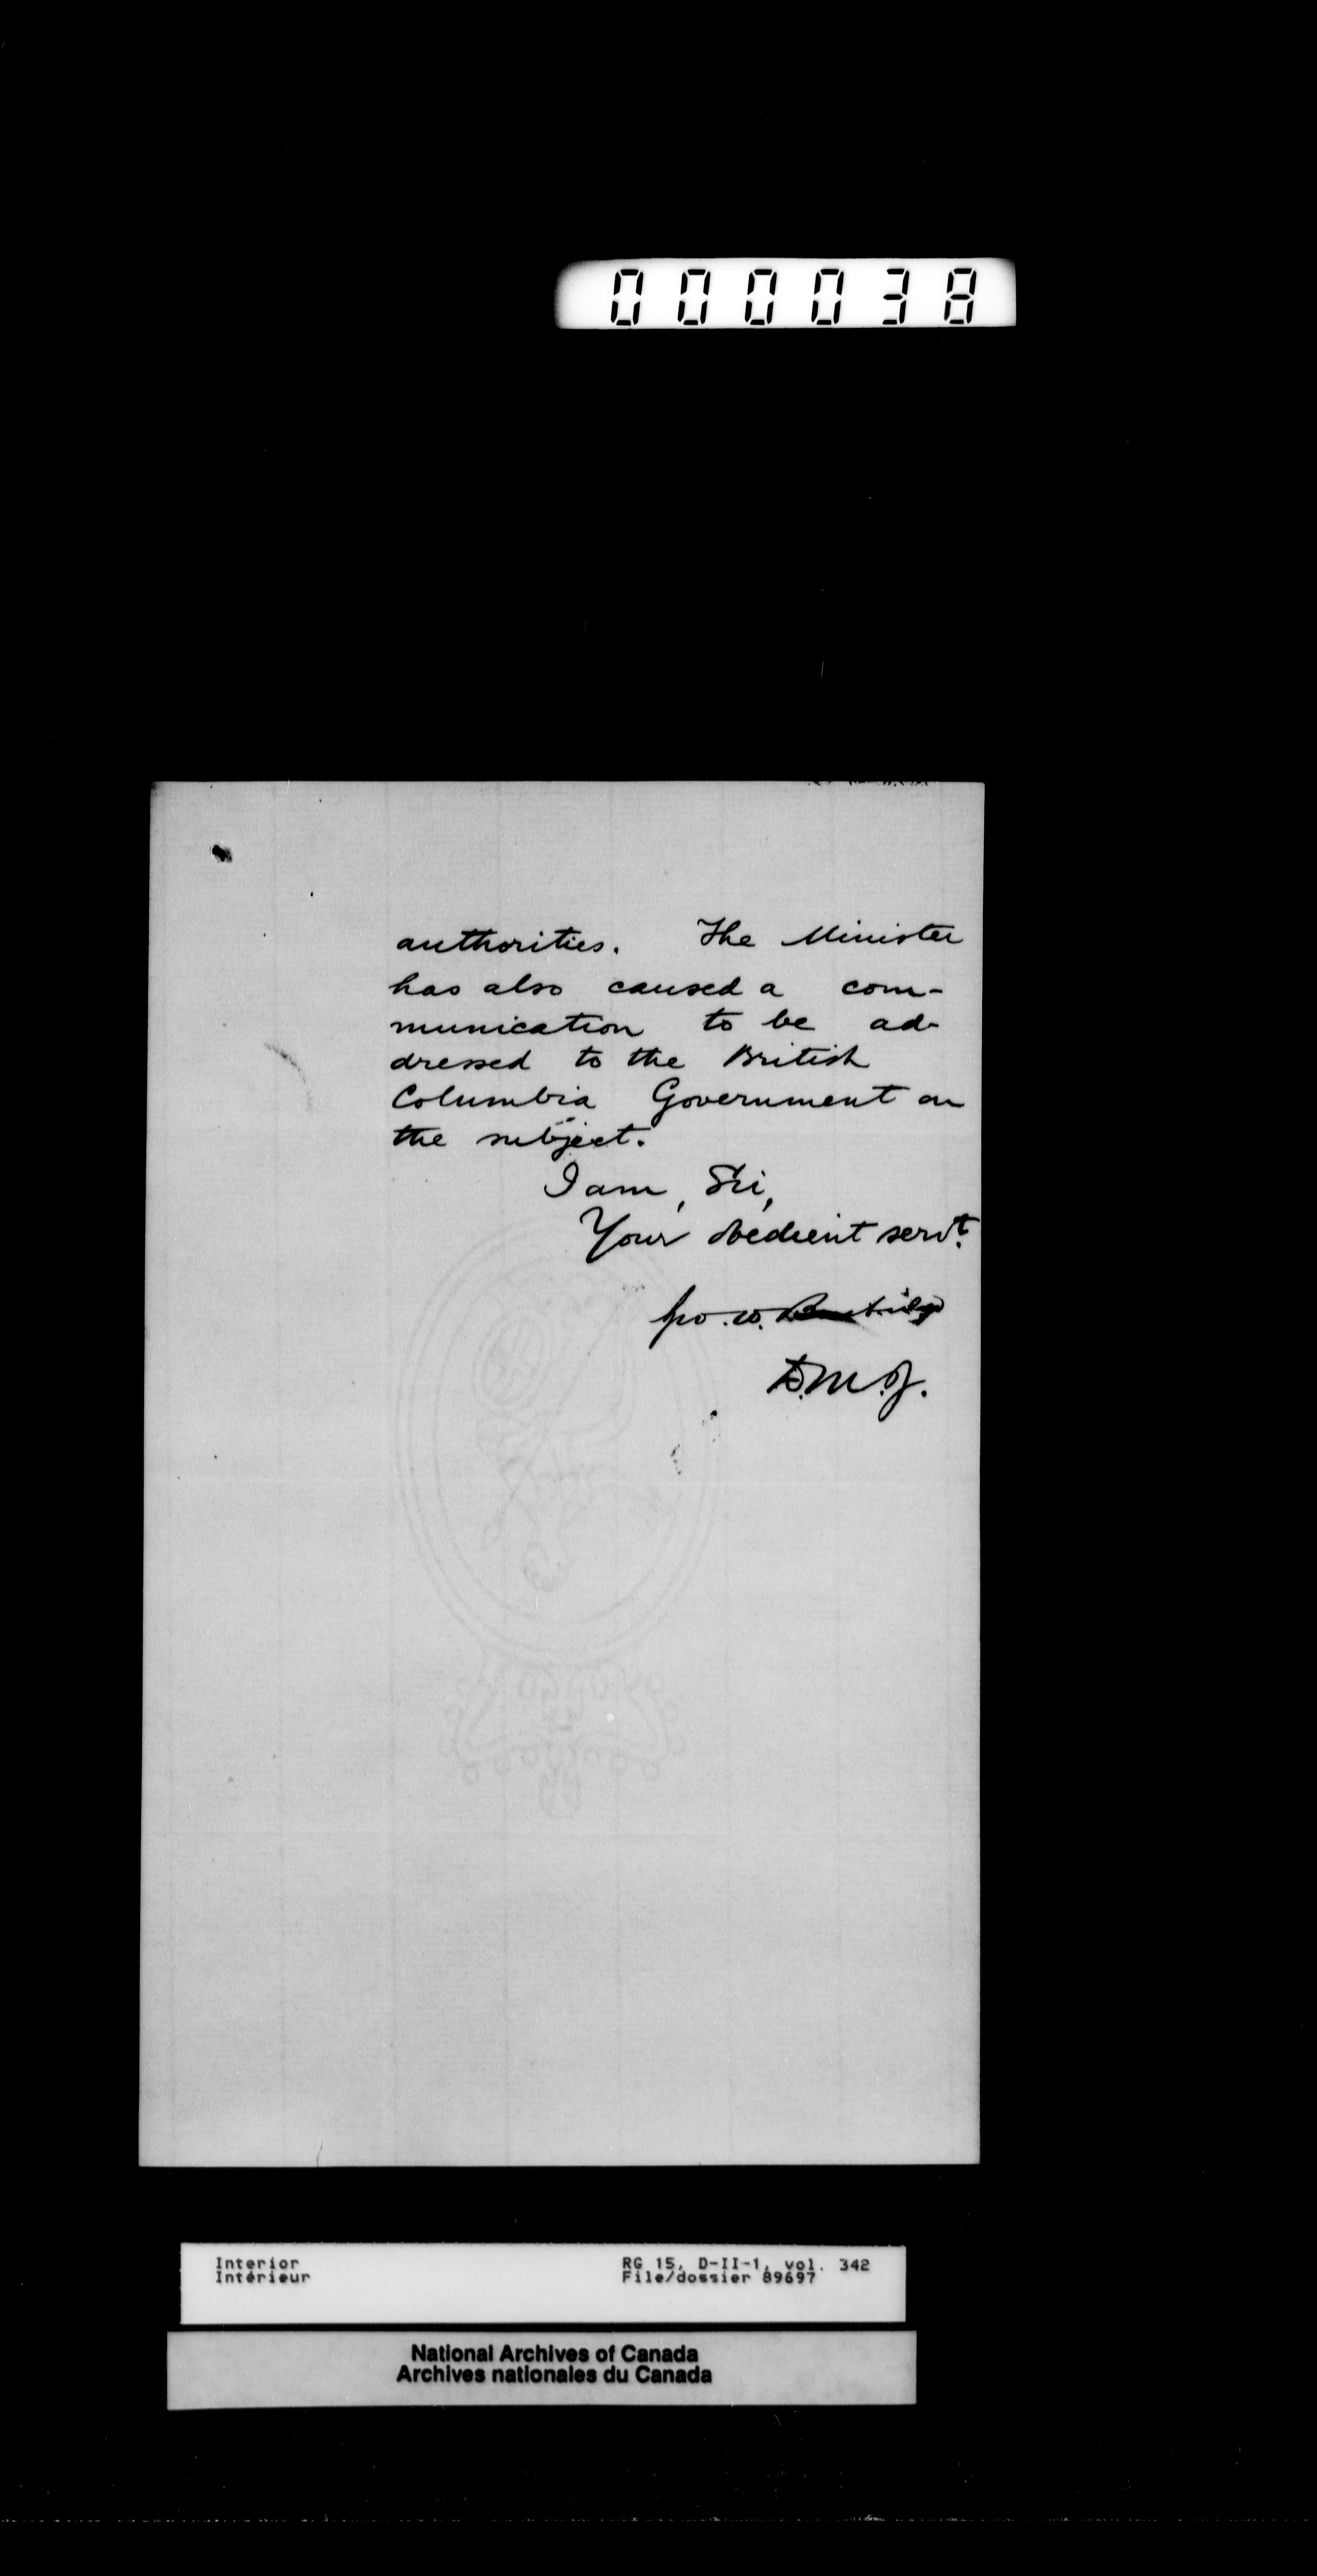 000038
authorities. The Minister
has also caused a com-
munication to be ad-
dressed to the British
Columbia Government on
the subject.
I am, Sir,
Your obedient servt.
Geo. W. Burbidge
D.M.J.
Interior
Intérieur
RG 15, D-II-1, vol. 342
File/dossier 89697
National Archives of Canada
Archives nationales du Canada